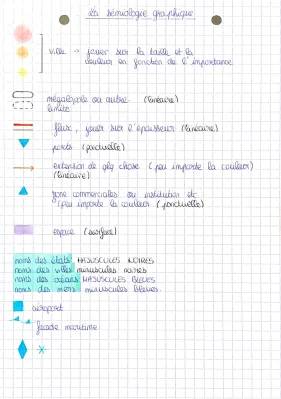 La sémiologie graphique
ville → jouer sur la taille et la
couleur en fonction de l'importance
mégalopole ou autre (linéaire)
limite
flux, jouer sur l'épaisseur (linéaire)
ports (ponctuelle)
extension de qlq chose (peu importe la couleur)
(linéaire)
zone commerciales ou institution etc
(peu importe la couleur) (ponctuelle)
espace (surface)
noms des états MAJUSCULES NOIRES
noms des villes minuscules noires
noms des océans MAJUSCULES BLEUES
noms des mers minuscules bleues
aéroport
façade maritime